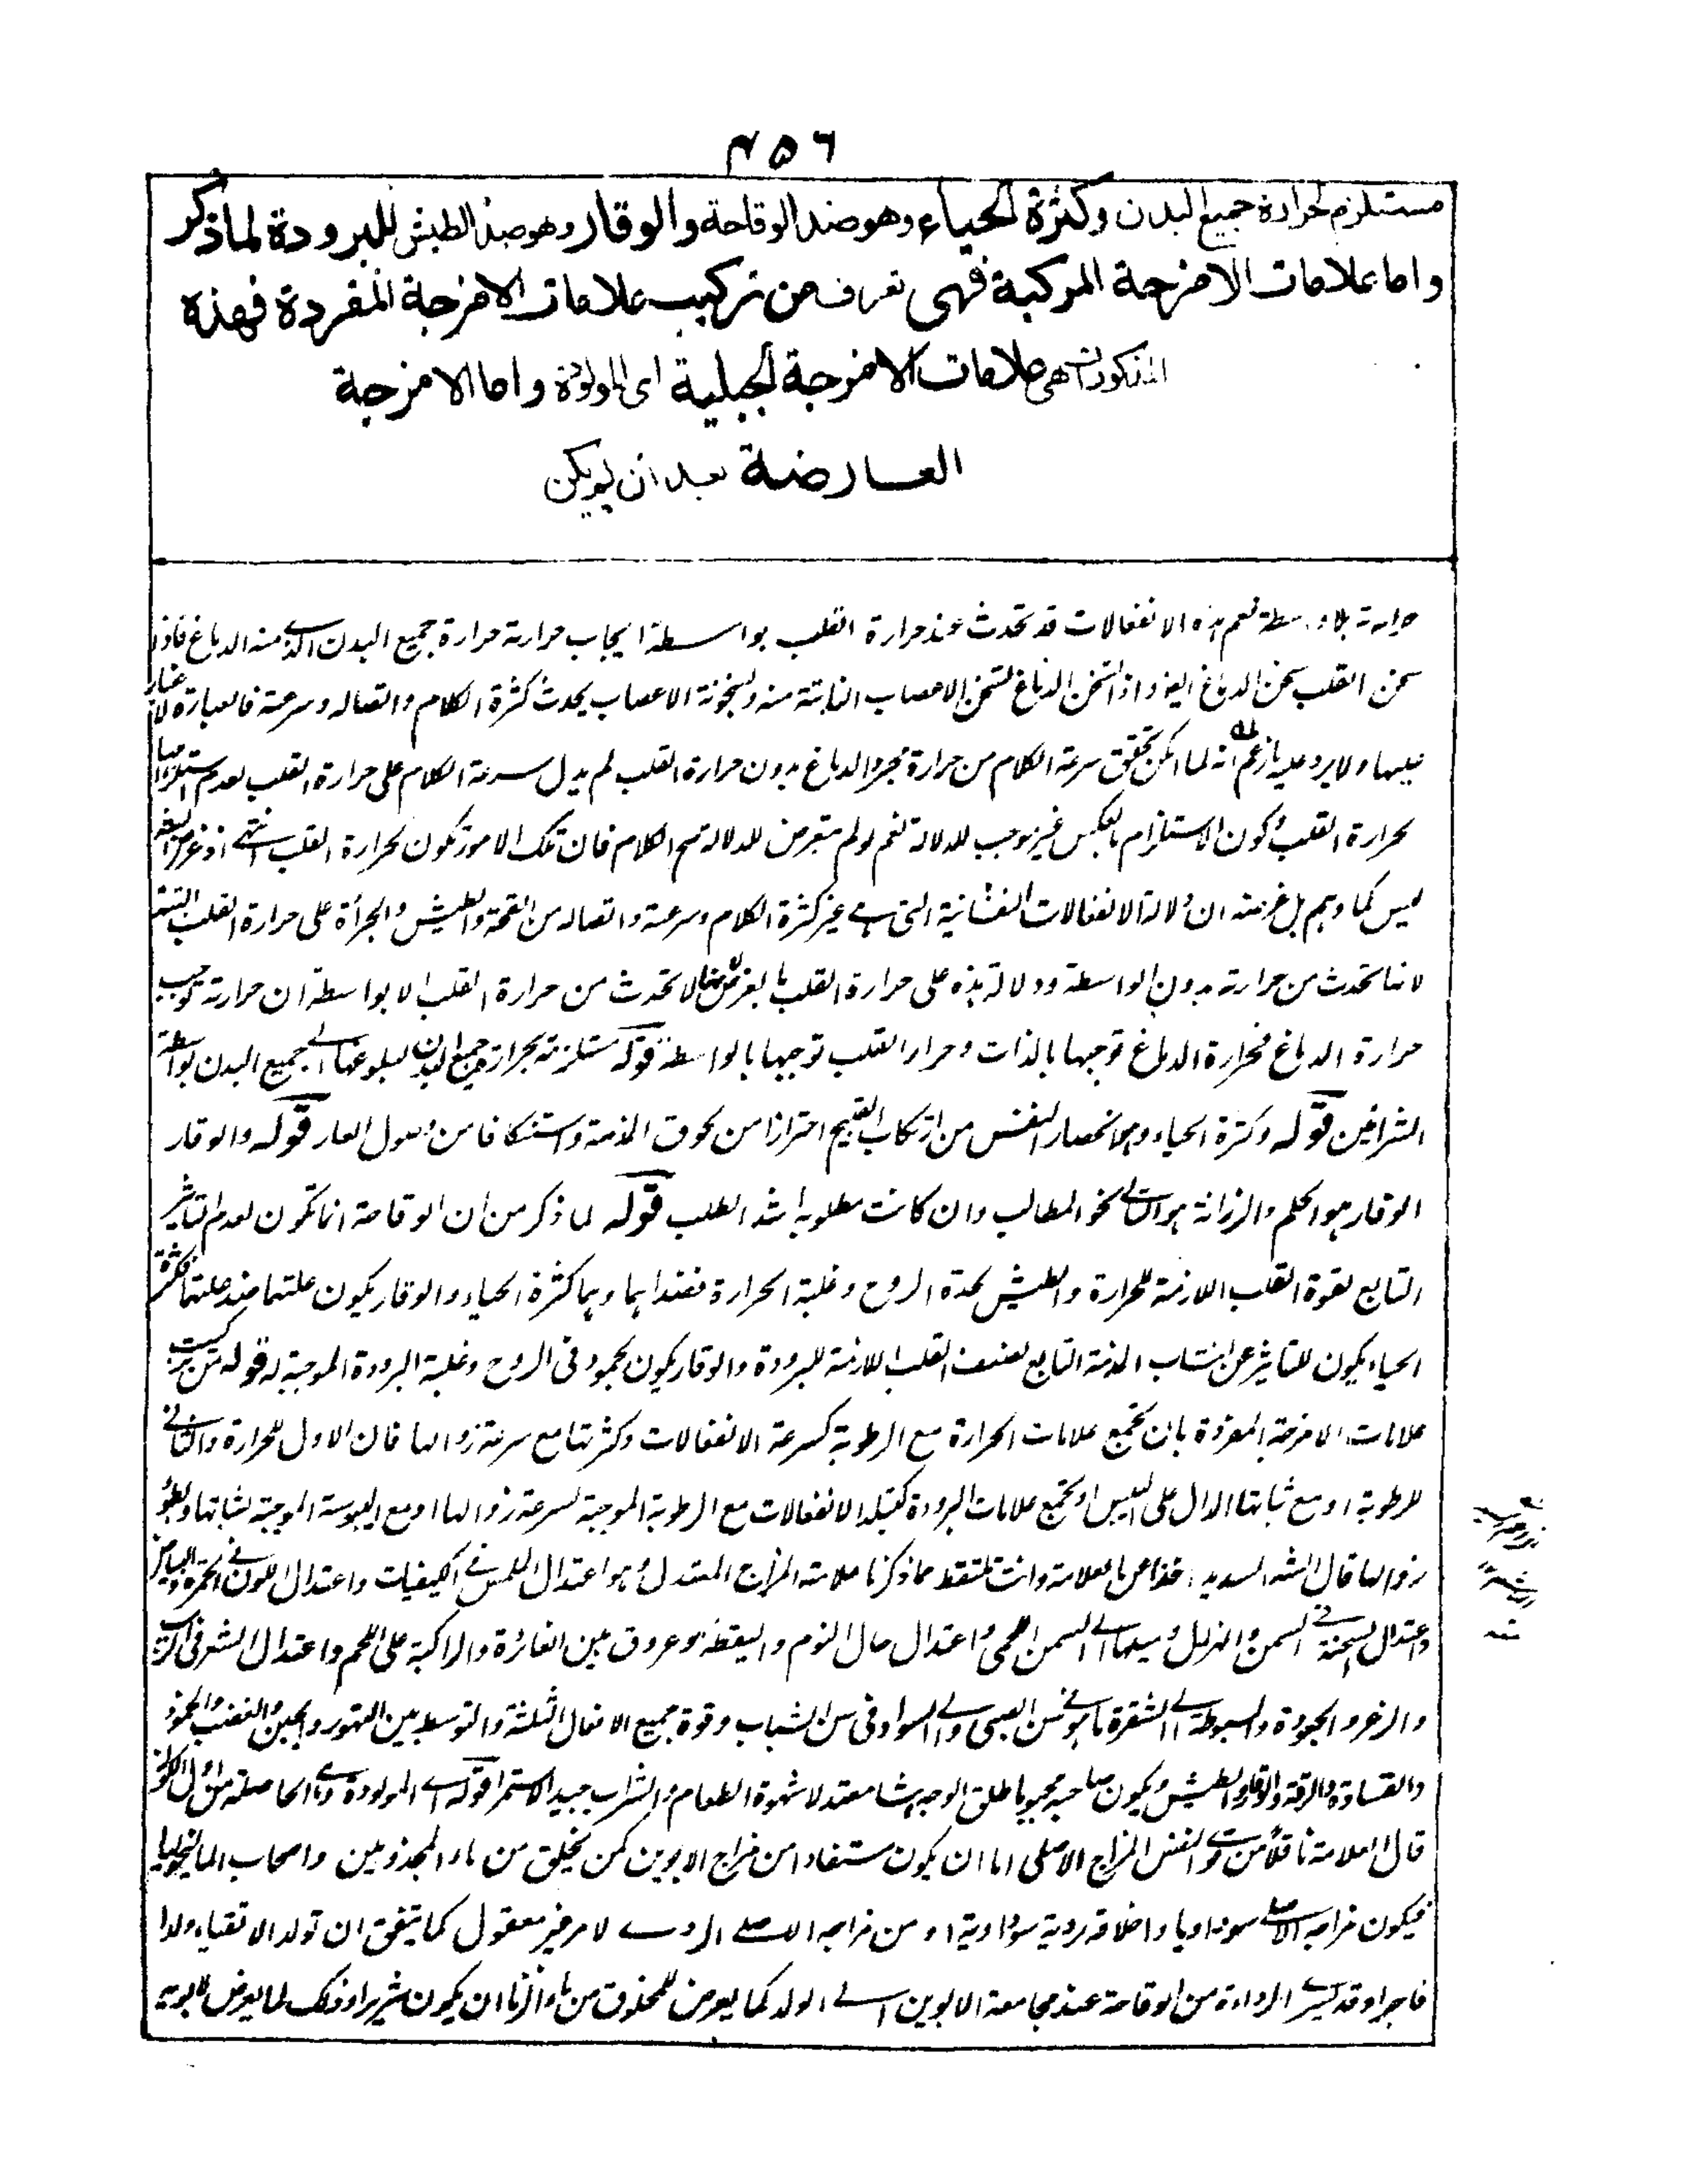 ٤٥٦
مستلزم لحرارة جميع البدن وكثرة الحياء وهو ضد الوقاحة والوقار وهو ضد الطيش للبرودة لما ذكر
واما علامات الامزجة المركبة فهى تعرف من تركيب علامات الامزجة المفردة فهذه
المذكورات هى علامات الامزجة الجبلية اى المولودة واما الامزجة
العارضة بعد ان لم يكن
حرارته بلا واسطة نعم هذه الانفعالات قد تحدث عند حرارة القلب بواسطة ايجاب حرارته حرارة جميع البدن الذى منه الدماغ فاذا
سخن القلب سخن الدماغ ايضا واذا سخن الدماغ تسخن الاعصاب النابتة منه ولسخونة الاعصاب يحدث كثرة الكلام واتصاله وسرعته فالعبارة لا غبار
عليها ولا يرد عليه ما زعم انه لما امكن تحقق سرعة الكلام من حرارة مجرد الدماغ بدون حرارة القلب لم يدل سرعة الكلام على حرارة القلب لعدم استلزامها
لحرارة القلب وكون الاستلزام بالعكس غير موجب للدلالة نعم لو لم يتعرض للدلالة تم الكلام فان تلك الامور تكون لحرارة القلب انتهى اذ غرض
ليس كما وهم بل غرضه ان دلالة الانفعالات النفسانية التى هى غير كثرة الكلام وسرعته واتصاله من القحة والطيش والجرأة على حرارة القلب
لانها تحدث من حرارته بدون الواسطة ودلالة هذه على حرارة القلب بالعرض لانها لا تحدث من حرارة القلب الا بواسطة ان حرارته توجب
حرارة الدماغ فحرارة الدماغ توجبها بالذات وحرارة القلب توجبها بالواسطة قوله مستلزمة لحرارة جميع البدن لبلوغها الى جميع البدن بواسطة
الشرائين قوله وكثرة الحياء وهو انحصار النفس من ارتكاب القبيح احترازا من لحوق المذمة واستنكافا من وصول العار قوله والوقار
الوقار هو الحلم والرزانة هو التانى نحو المطالب وان كانت مطلوبة اشد الطلب قوله لما ذكر من ان الوقاحة انما تكون لعدم التاثير
التابع لقوة القلب اللازمة للحرارة والطيش لحدة الروح وغلبة الحرارة فضداهما وهما كثرة الحياء والوقار يكون علتهما ضد علتهما فكثرة
الحياء يكون للتاثير عن انتساب المذمة التابع لضعف القلب اللازمة للبرودة والوقار يكون لجمود فى الروح وغلبة البرودة الموجبة له قوله من تركيب
علامات الامزجة المفردة بان يجتمع علامات الحرارة مع الرطوبة كسرعة الانفعالات وكثرتها مع سرعة زوالها فان الاول للحرارة والثانى
للرطوبة او مع ثباتها الدال على اليبس او يجتمع علامات البرودة كتبلد الانفعالات مع الرطوبة الموجبة لسرعة زوالها او مع اليبوسة الموجبة لثباتها وبطوء
زوالها قال الشه السديد اخذا من العلامة وانت تلتقط مما ذكرنا علامة المزاج المعتدل وهو اعتدال الملمس فى الكيفيات واعتدال اللون فى الحمرة والبياض
واعتدال السحنة فى السمن والهزال وميلها الى السمن اللحمى واعتدال حال النوم واليقظة وعروق بين الغائرة والراكبة على اللحم واعتدال الشعر فى
والزعر والجعودة والسبوطة الى الشقرة ما هو فى سن الصبى والى السواد فى سن الشباب وقوة جميع الافعال الثلثة والتوسط بين التهور والجبن والغضب والخمود
والقساوة والرقة والوقار والطيش ويكون صاحبه محبوبا طلق الوجه بشا معتدلا شهوة الطعام والشراب جيد الاستمراء قوله اى المولودة اى الحاصلة من اول
قال العلامة ناقلا من قوى النفس المزاج الاصلى اما ان يكون مستفادا من مزاج الابوين كمن يخلق من ماء المجذومين واصحاب المالنخوليا
فيكون مزاجه الاصلى سوداويا واخلاقه ردية سوداوية او من مزاجه الاصلى الردى لامر غير معقول كما يتفق ان تولد الاتقياء ولدا
فاجرا وقد تسرى الرداءة من الوقاحة عند مجامعة الابوين الى الولد كما يعرض للمخلوق من ماء الزنا ان يكون شريرا وذلك لما يعرض لابويه